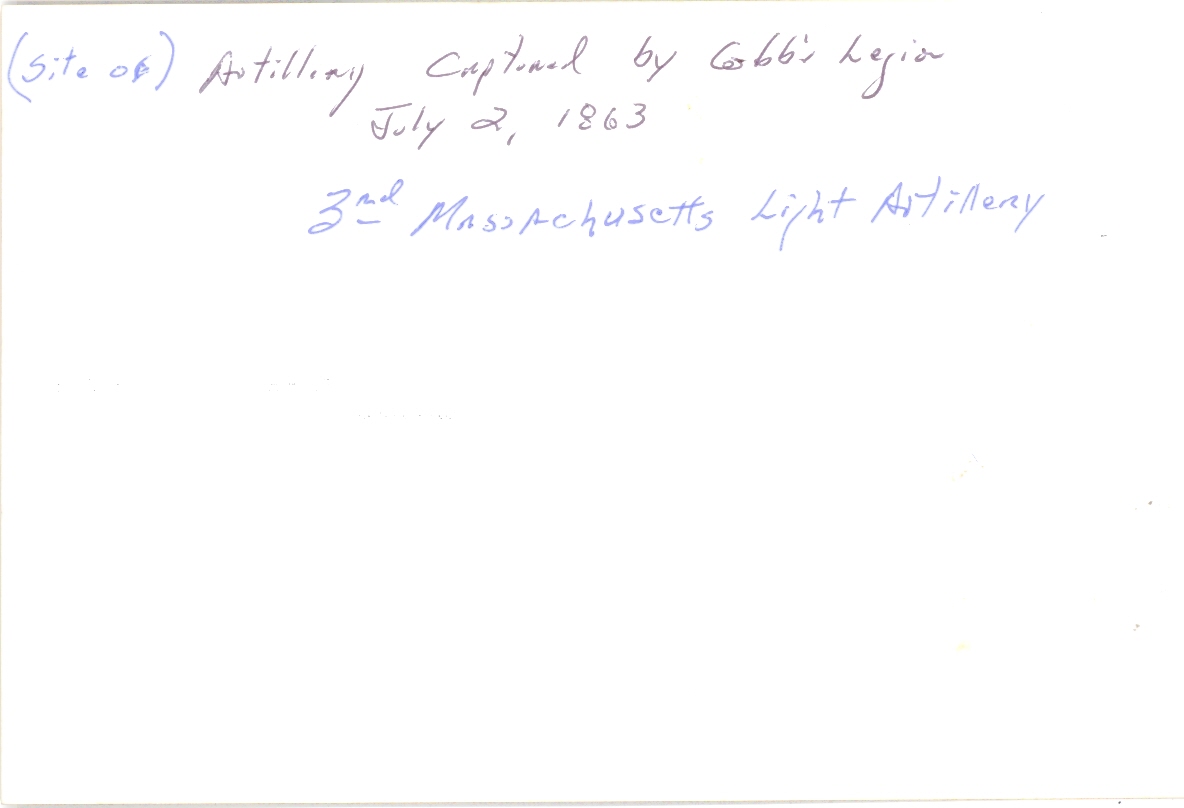 (Site of) Artillery Captured by Cobb's Legion
July 2, 1863
3nd Massachusetts Light Artillery